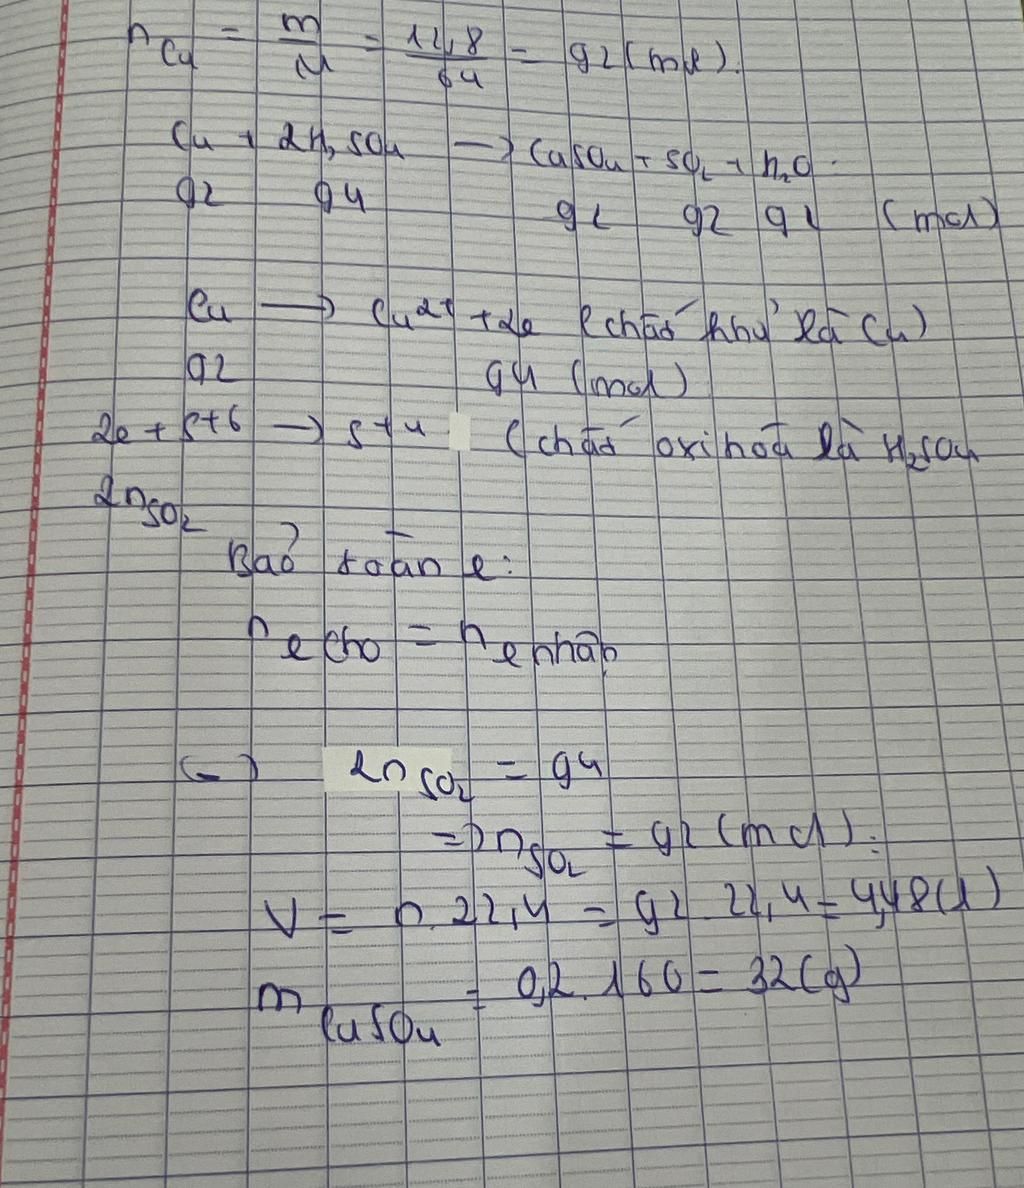 n Cu = m/M = 12,8/64 = 0,2 (mol).
Cu + 2H2SO4 → CuSO4 + SO2 + H2O.
0,2 0,4 0,2 0,2 0,2 (mol)
Cu → Cu2+ + 2e (chất khử là Cu)
0,2 0,4 (mol)
2e + S+6 → S+4 (chất oxi hoá là H2SO4
2nSO2
Bảo toàn e:
n e cho = n e nhận
(-) 2nSO2 = 0,4
=> nSO2 = 0,2 (mol).
V = n.22,4 = 0,2 . 22,4 = 4,48 (l)
m CuSO4 = 0,2.160 = 32 (g)